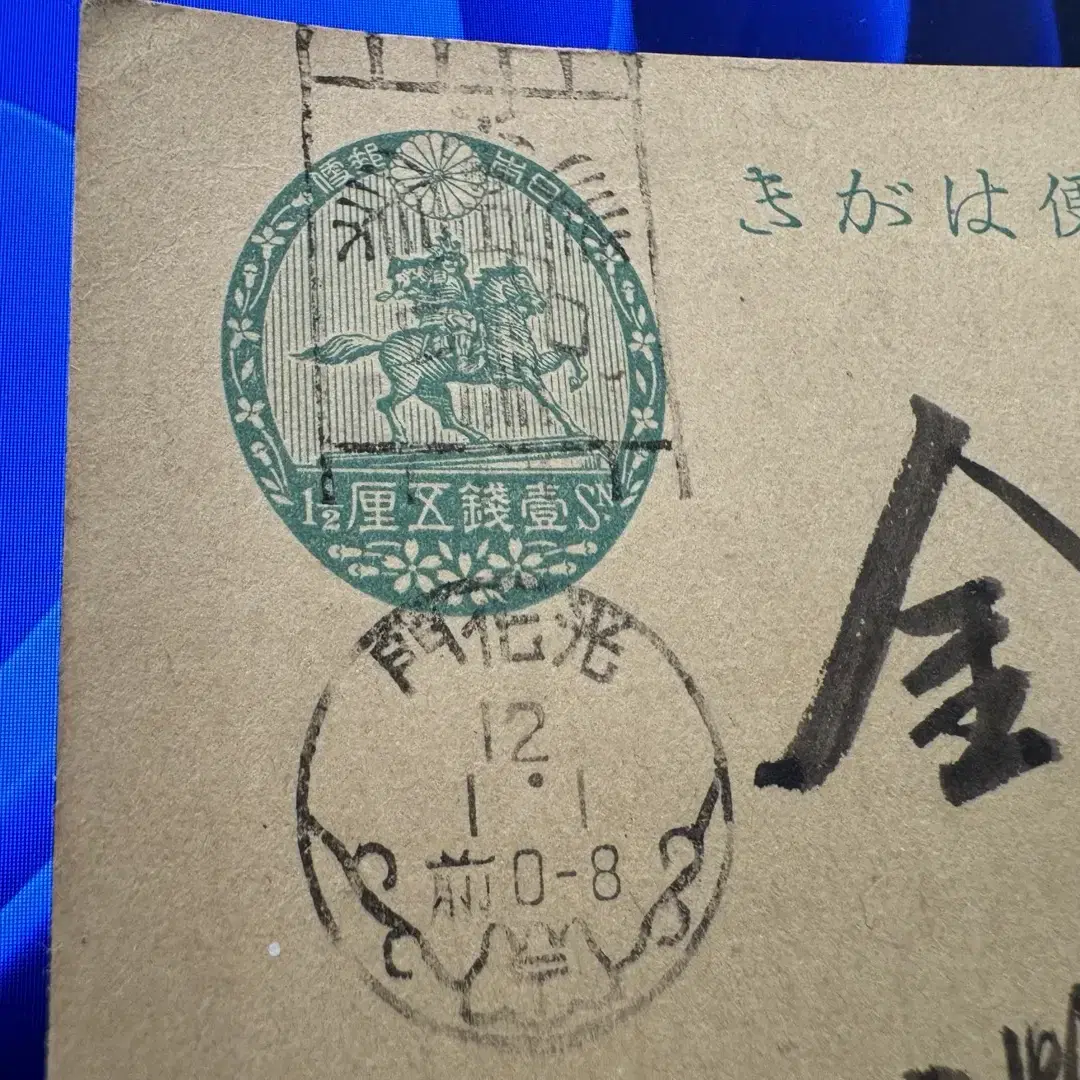 便はがき
日本郵便
1½ 壹錢五厘 SN.
光化門
12.
1 1
前0-8
金